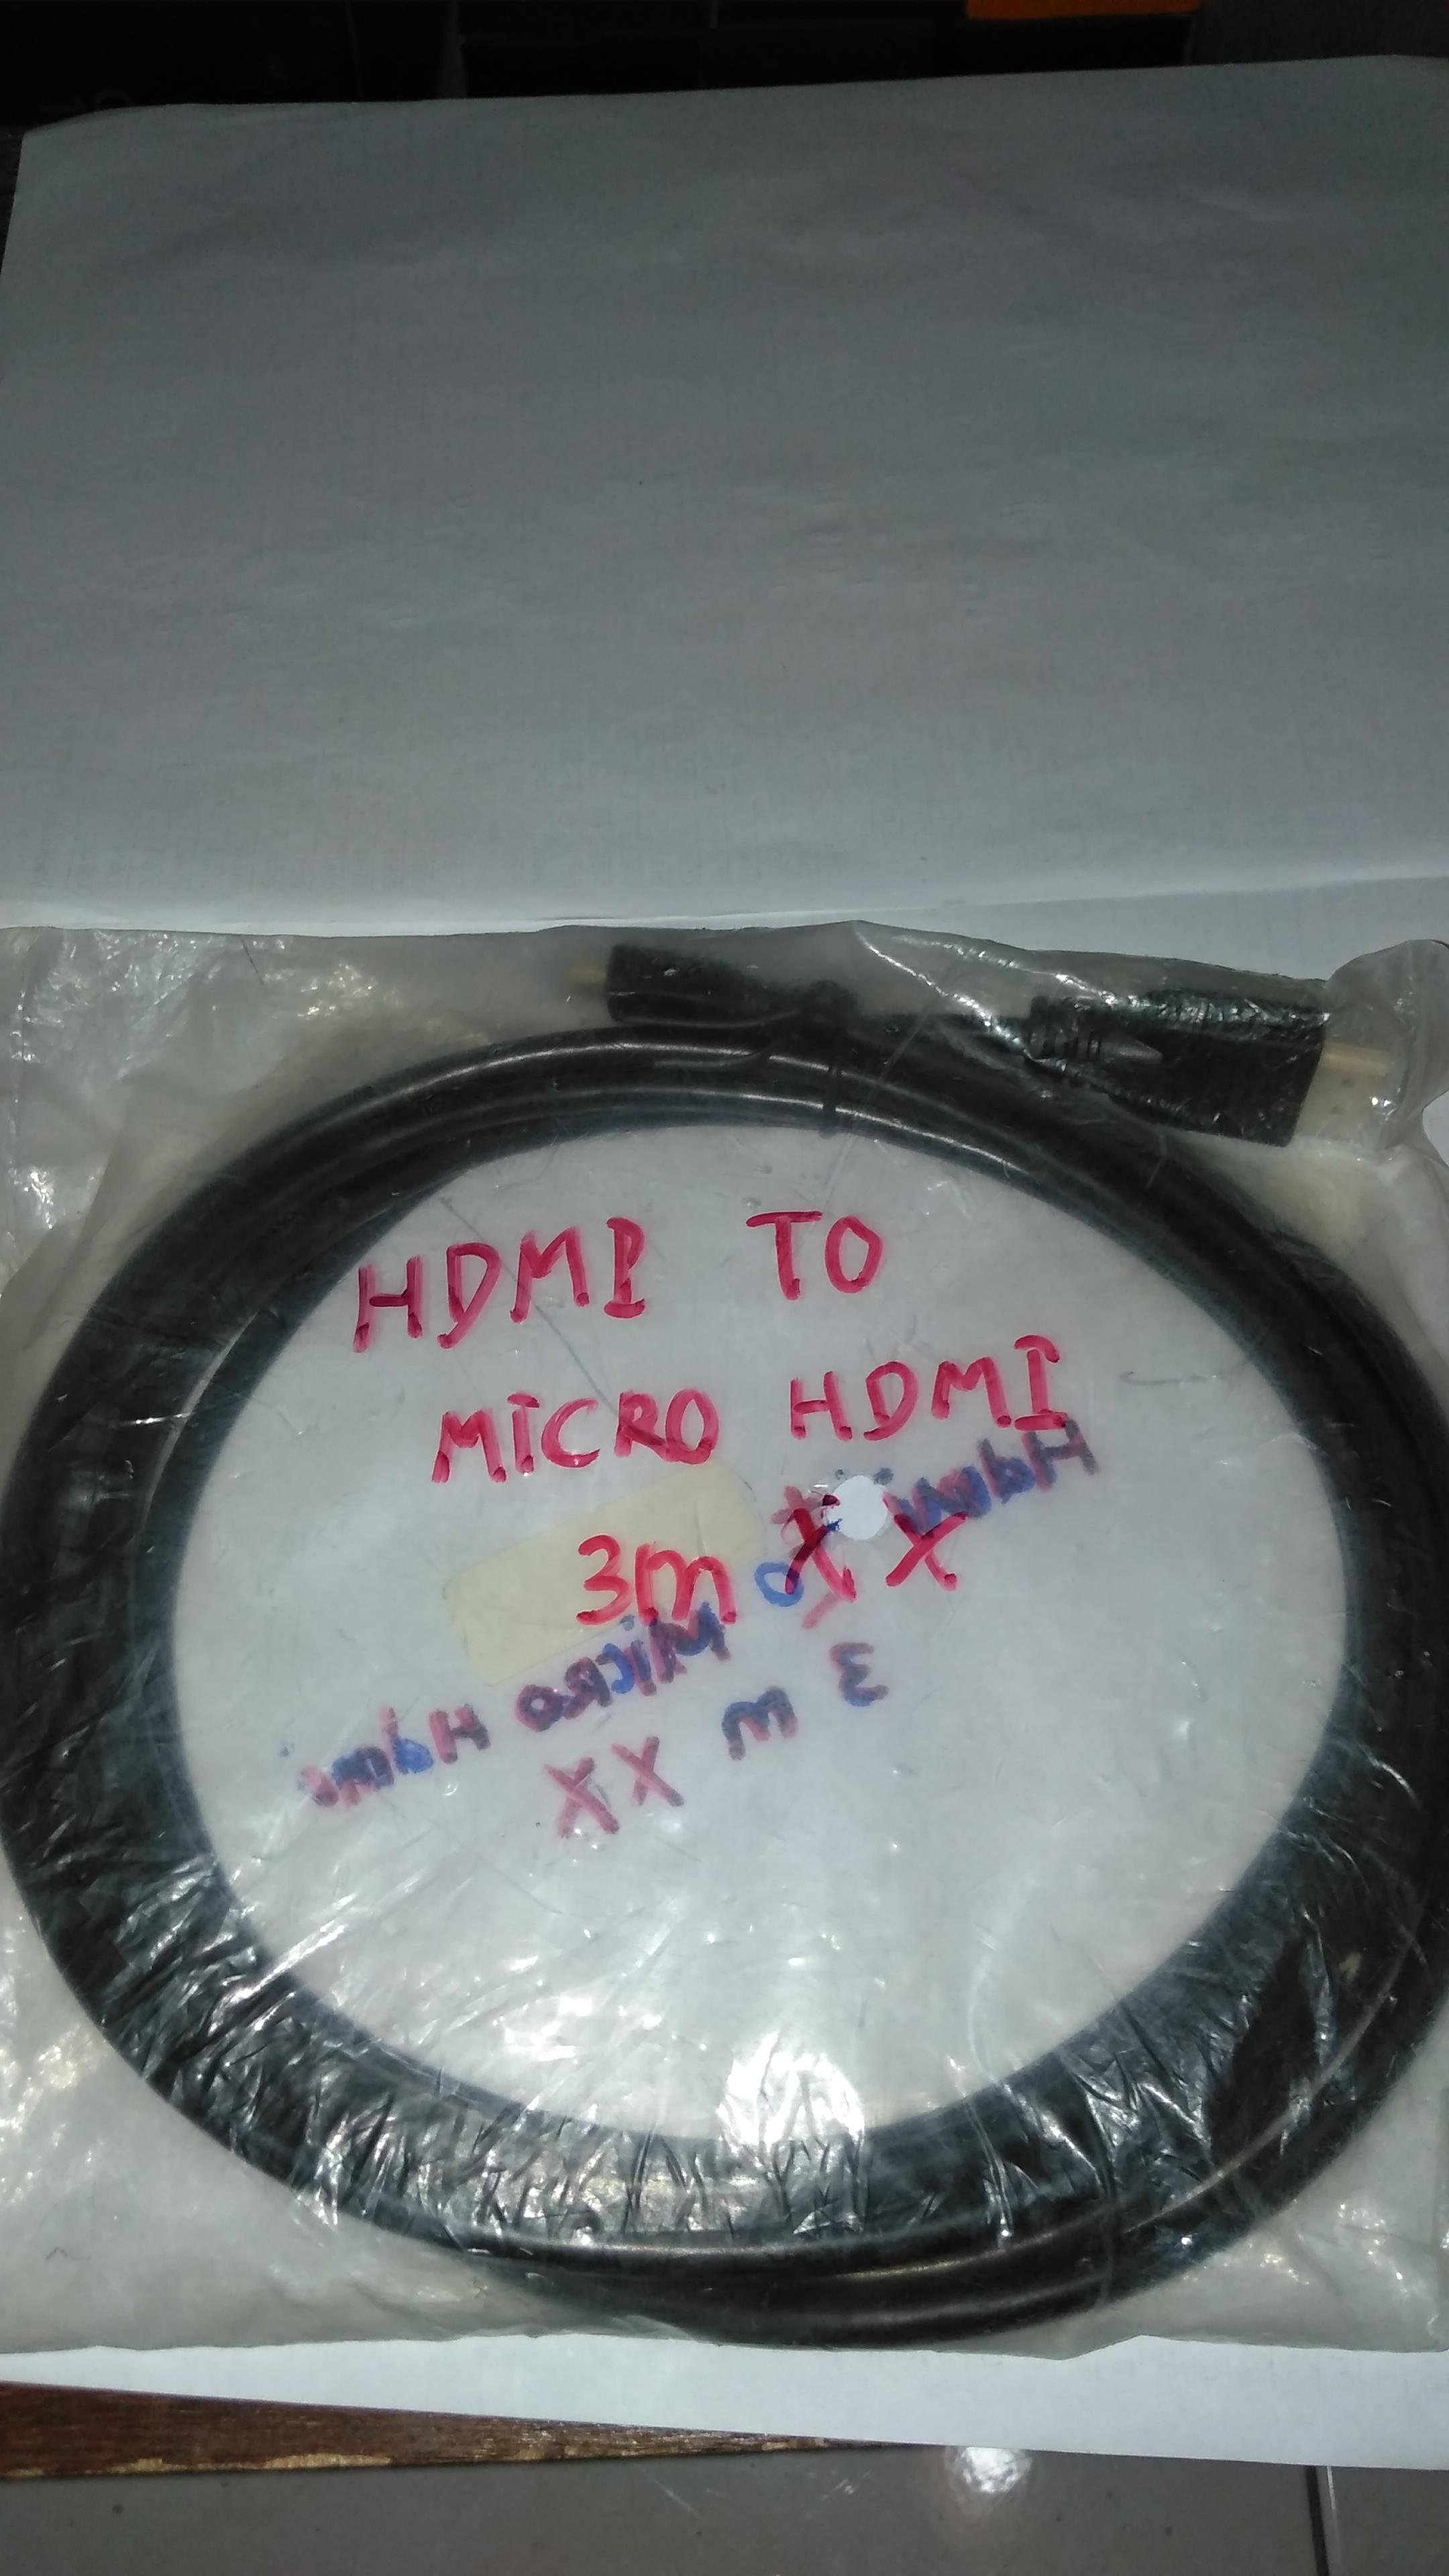 HDMI TO
MICRO HDMI
3m XX
Hdmi
TO
Micro Hdmi
3 m
XX